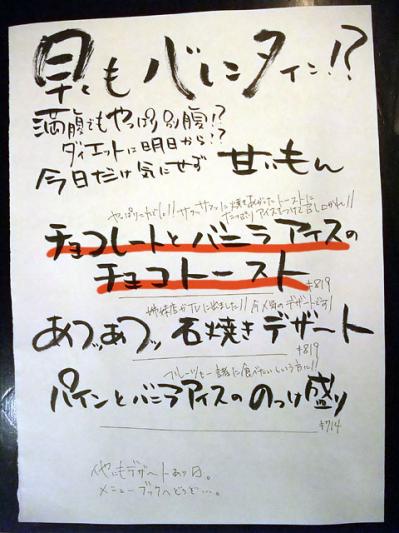 早くもバレンタイン!?
満腹でもやっぱり別腹!?
ダイエットは明日から!?
今日だけ気にせず 甘いもん
やっぱりこれでしょ!! サクッサクッに焼きあがったトーストに
たっぷりアイスをつけて召し上がれ!!
チョコレートとバニラアイスの
チョコトースト
¥819
姉妹店がTVに出ました!! 今〆のデザートです!
あつッあつッ 石焼きデザート
¥819
フルーツも一緒に食べたいという方に!!
パインとバニラアイスの のっけ盛り
¥714
他にもデザートあり〼。
メニューブックへどうぞ…。